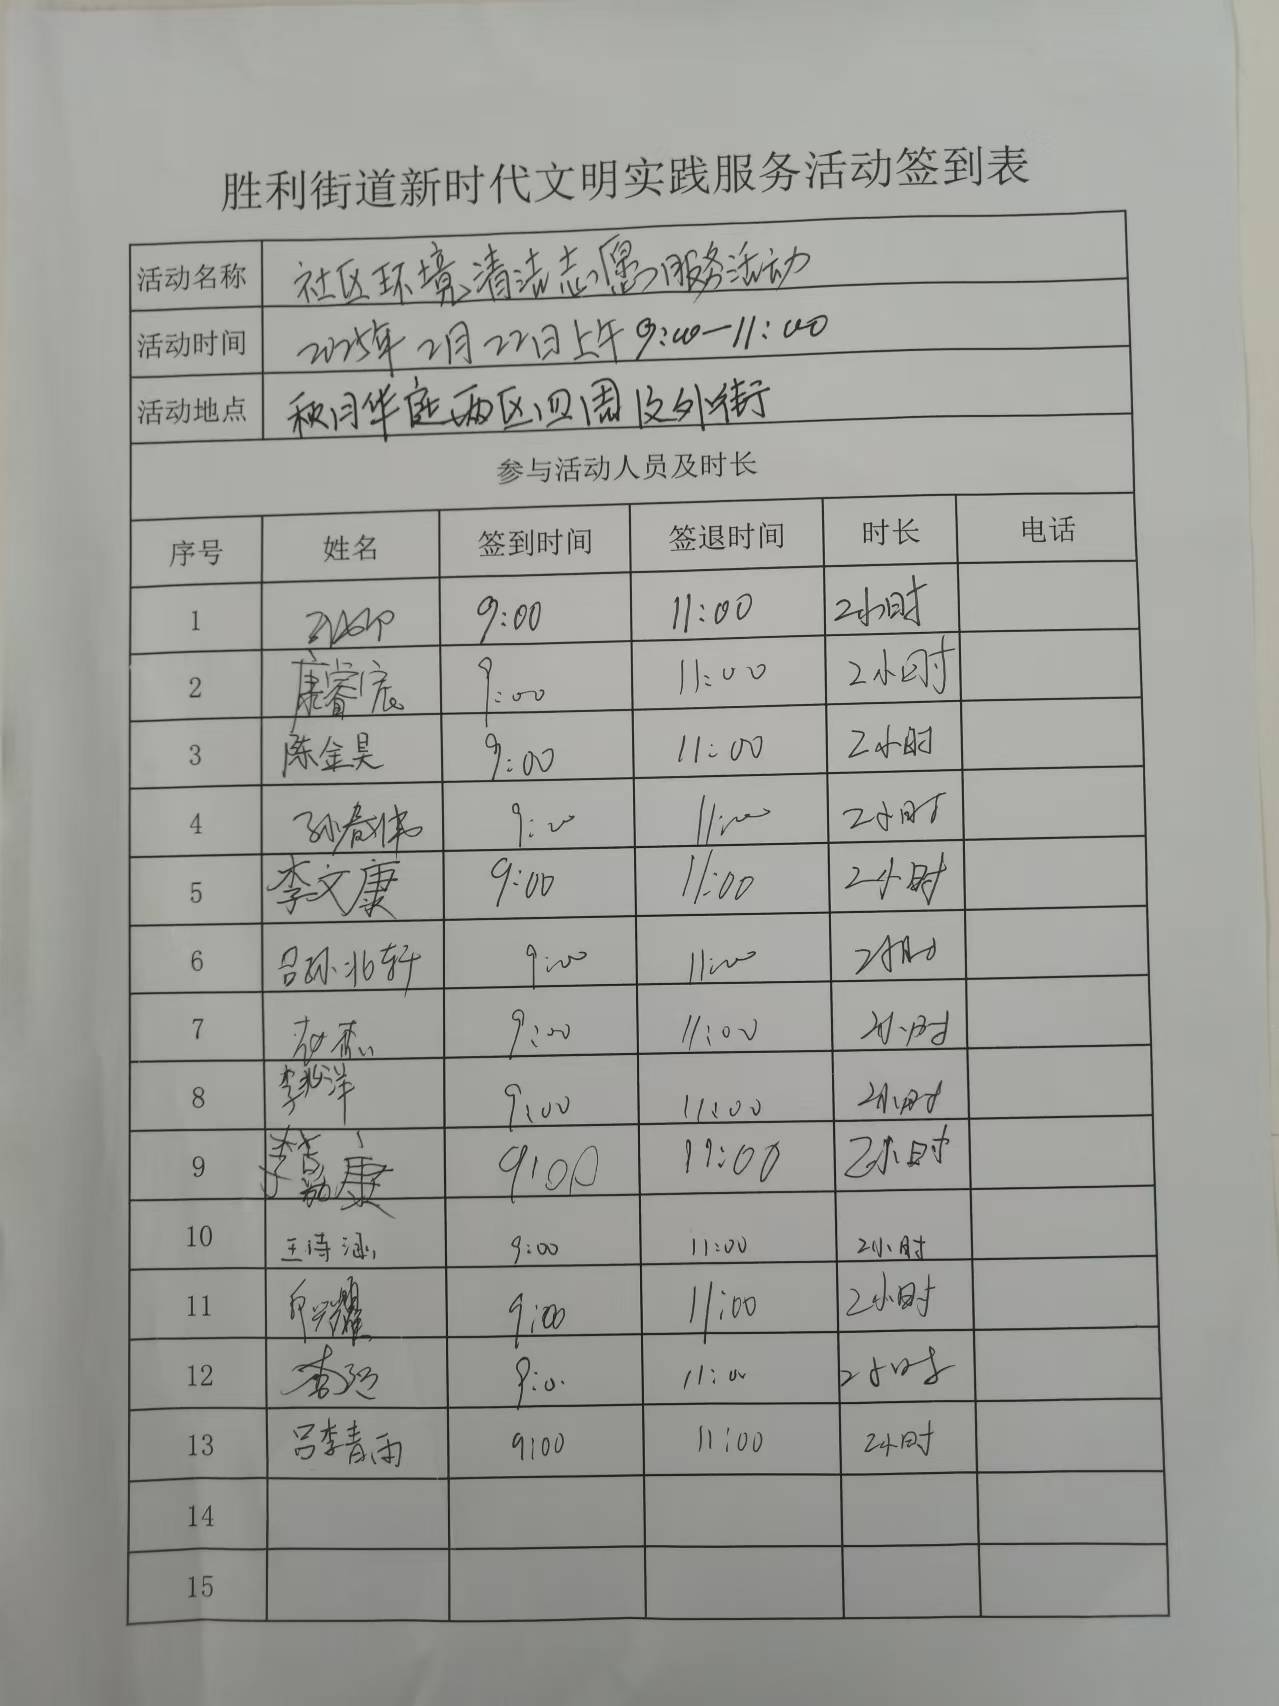 胜利街道新时代文明实践服务活动签到表
活动名称 社区环境清洁志愿服务活动
活动时间 2025年2月22日上午9:00—11:00
活动地点 秋月华庭两区四周及外街
参与活动人员及时长
序号 姓名 签到时间 签退时间 时长 电话
1 9:00 11:00 2小时
2 康睿宸 9:00 11:00 2小时
3 陈金昊 9:00 11:00 2小时
4 孙春伟 9:00 11:00 2小时
5 李文康 9:00 11:00 2小时
6 吕孙兆轩 9:00 11:00 2小时
7 赵杰 9:00 11:00 2小时
8 李兆洋 9:00 11:00 2小时
9 9:00 11:00 2小时
10 王诗涵 9:00 11:00 2小时
11 9:00 11:00 2小时
12 9:00 11:00 2小时
13 吕李青雨 9:00 11:00 2小时
14
15